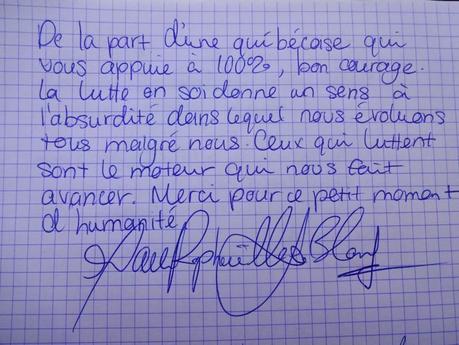 De la part d'une québécoise qui
vous appuie à 100%, bon courage.
La lutte en soi donne un sens à
l'absurdité dans lequel nous évoluons
tous malgré nous. Ceux qui luttent
sont le moteur qui nous fait
avancer. Merci pour ce petit moment
d'humanité